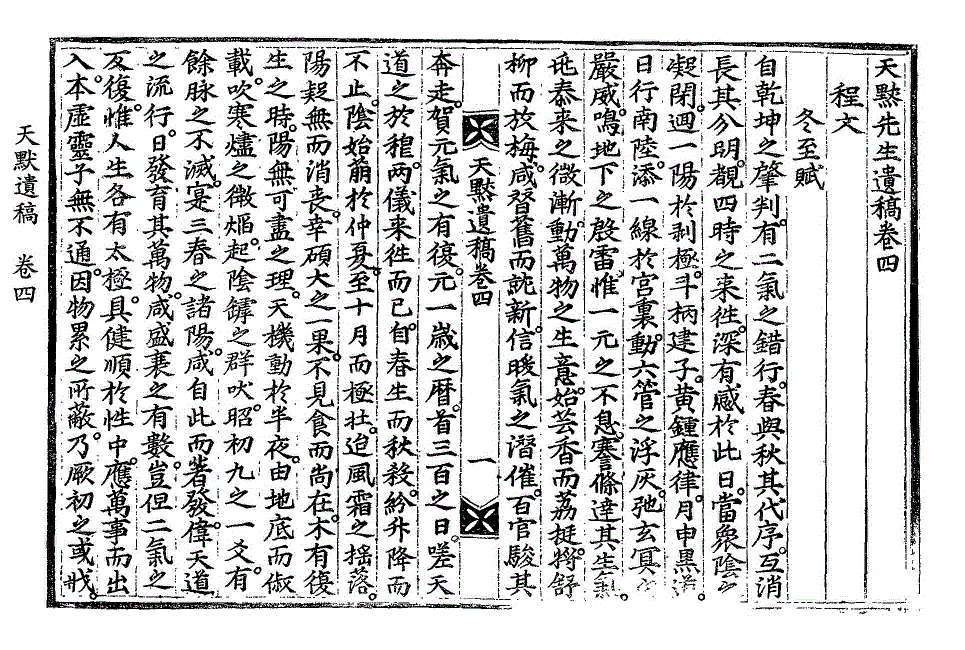 天默先生遺稿卷四
程文
冬至賦
自乾坤之肇判。有二氣之錯行。春與秋其代序。互消
長其分明。觀四時之来徃。深有感於此日。當衆陰之
凝閉。迴一陽於剥極。斗柄建子。黃鍾應律。月申黑道。
日行南陸。添一線於宮裏。動六管之浮灰。弛玄冥之
嚴威。鳴地下之殷雷。惟一元之不息。謇條達其生氣。
兆泰来之微漸。動萬物之生意。始芸香而荔挺。將舒
柳而放梅。咸發舊而就新。信暖氣之潛催。百官駿其
天默遺稿卷四
一
奔走。賀元氣之有復。元一歲之曆首。三百之日。嗟天
道之於穆。两儀来徃而已。自春生而秋殺。紛升降而
不止。陰始萠於仲夏。至十月而極壮。迫風霜之搖落。
陽疑無而消喪。幸碩大之一果。不見食而尚在。木有復
生之時。陽無可盡之理。天機動於半夜。由地底而俶
載。吹寒燼之微焰。起陰罅之群吠。昭初九之一爻。有
餘脉之不滅。寔三春之諸陽。咸自此而著發。偉天道
之流行。日發育其萬物。咸盛衰之有數。豈但二氣之
反復。惟人生各有太極。具健順於性中。應萬事而出
入。本虛靈予無不通。因物累之所蔽。乃厥初之或戕。
天默遺稿 卷四